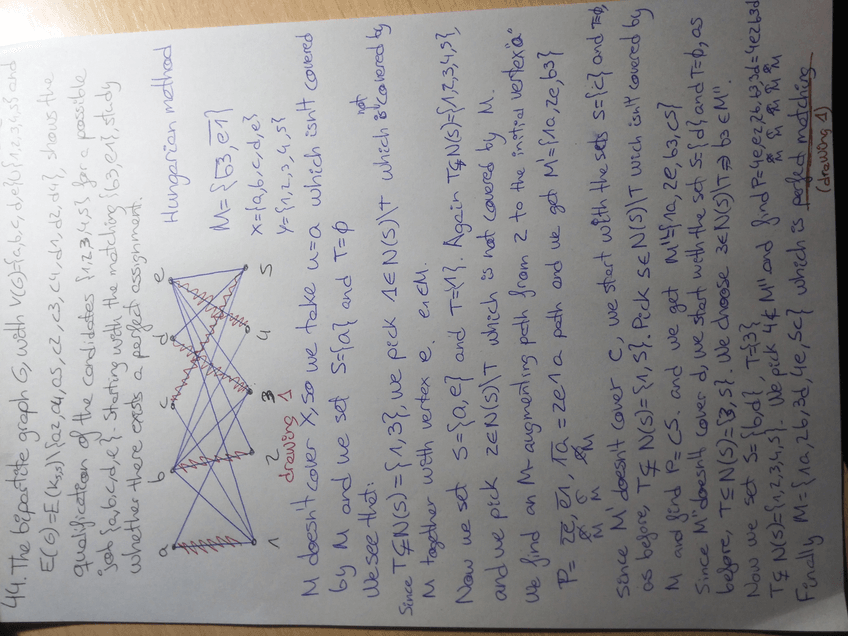 44. The bipartite graph G, with V(G)={a,b,c,d,e}∪{1,2,3,4,5} and
E(G)=E(K5,5)\{a2,a4,a5,c2,c3,c4,d1,d2,d4}, shows the
qualification of the candidates {1,2,3,4,5} for a possible
job {a,b,c,d,e}. Starting with the matching {b3,e1}, study
whether there exists a perfect assignment.
a b c d e
1 2 3 4 5
drawing 1
Hungarian method
M={b3,e1}
X={a,b,c,d,e}
Y={1,2,3,4,5}
M doesn't cover X, so we take u=a which isn't covered
by M and we set S={a} and T=∅
We see that:
Since T⊊N(S)={1,3}, we pick 1∈N(S)\T which is not covered by
M together with vertex e. e1∈M.
Now we set S={a,e} and T={1}. Again T⊊N(S)={1,2,3,4,5},
and we pick 2∈N(S)\T which is not covered by M.
We find an M-augmenting path from 2 to the initial vertex "a"
P= 2e, e1, 1a = 2e1a path and we get M'={1a,2e,b3}
∉M ∈M ∉M
Since M' doesn't cover c, we start with the sets S={c} and T=∅,
as before, T⊊N(S)={1,5}. Pick 5∈N(S)\T wich isn't covered by
M and find P=C5. and we get M''={1a,2e,b3,c5}
Since M'' doesn't cover d, we start with the set S={d} and T=∅, as
before, T⊆N(S)={3,5}. We choose 3∈N(S)\T⇒b3∈M''.
Now we set S={b,d}, T={3}
T⊊N(S)={1,2,3,4,5}. We pick 4∉M'' and find P=4e,e2,2b,b3,3d=4e2b3d
∉M ∈M ∉M ∈M ∉M
Finally M={1a,2b,3d,4e,5c} which is perfect matching
(drawing 1)